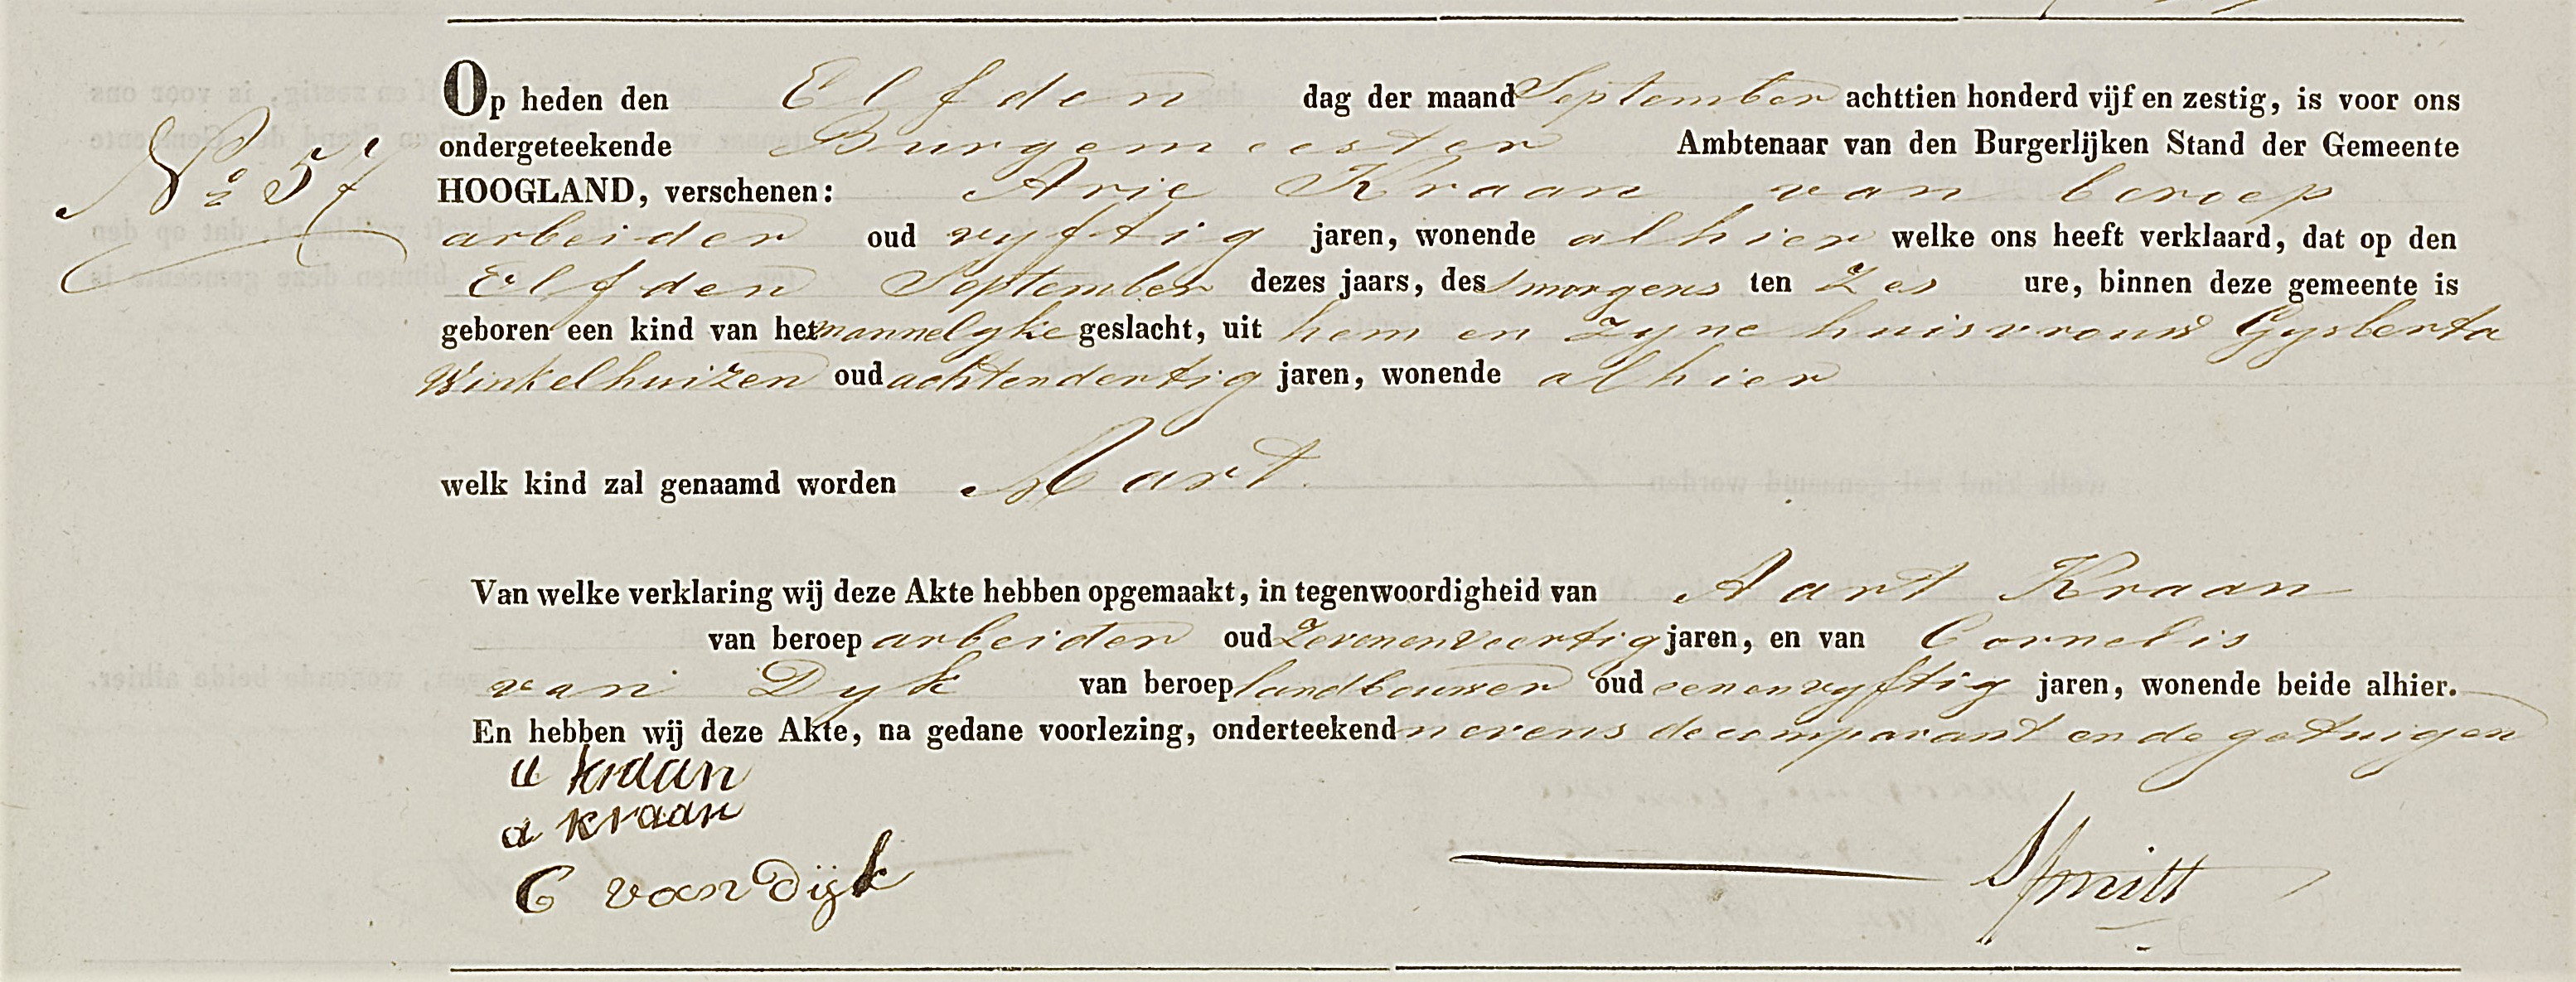 Op heden den Elfden dag der maand September achttien honderd vijf en zestig, is voor ons
ondergeteekende Burgemeester Ambtenaar van den Burgerlijken Stand der Gemeente
No 57
HOOGLAND, verschenen: Arie Kraan van beroep
arbeider oud vyftig jaren, wonende alhier welke ons heeft verklaard, dat op den
Elfden September dezes jaars, des smorgens ten Zes ure, binnen deze gemeente is
geboren een kind van het mannelyke geslacht, uit hem en zyne huisvrouw Gysberta
Winkelhuizen oud achtendertig jaren, wonende alhier
welk kind zal genaamd worden Aart
Van welke verklaring wij deze Akte hebben opgemaakt, in tegenwoordigheid van Aart Kraan
van beroep arbeider oud Zevenenveertig jaren, en van Cornelis
van Dyk van beroep landbouwer oud eenenvyftig jaren, wonende beide alhier.
En hebben wij deze Akte, na gedane voorlezing, onderteekend nevens de comparant en de getuigen
a kraan
a kraan
C van Dijk
Smitt